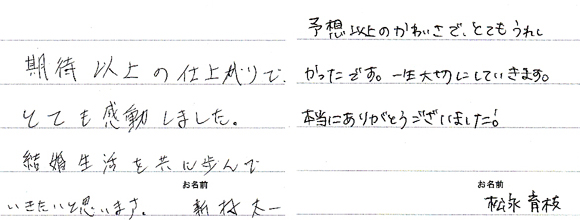 期待以上の仕上がりで、
とても感動しました。
結婚生活を共に歩んで
いきたいと思います。
お名前
新村 太一
予想以上のかわいさで、とてもうれし
かったです。一生大切にしていきます。
本当にありがとうございました!
お名前
松永 青枝